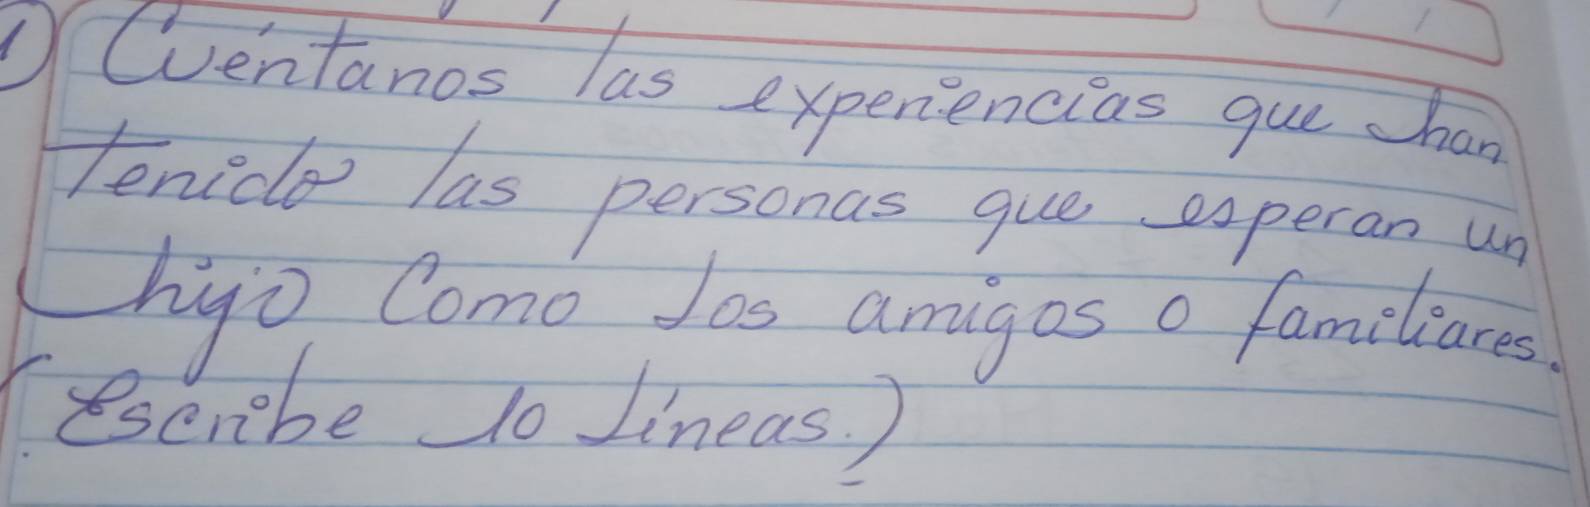 1) Cuéntanos las experiencias que han
tenido las personas que esperan un
hijo como los amigos o familiares.
(Escribe 10 líneas.)